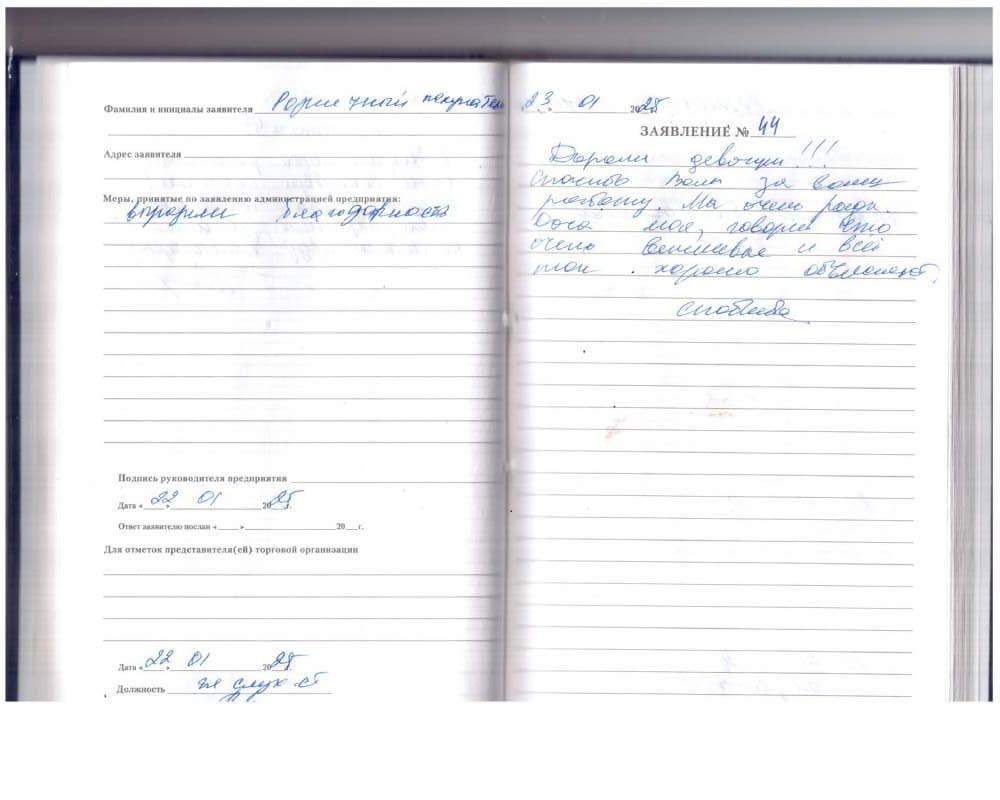 Фамилия и инициалы заявителя Розничный покупатель
Адрес заявителя
Меры, принятые по заявлению администрацией предприятия:
выразили благодарность
Подпись руководителя предприятия
Дата «22» 01 2025г.
Ответ заявителю послан «___» ___ 20___г.
Для отметок представителя(ей) торговой организации
Дата «22» 01 2025
Должность
23 01 2025
ЗАЯВЛЕНИЕ № 44
девочки!!!
Спасибо Вам за вашу
работу. Мы очень рады.
моя, говорит что
очень вежливые и всё
хорошо объясняют.
спасибо